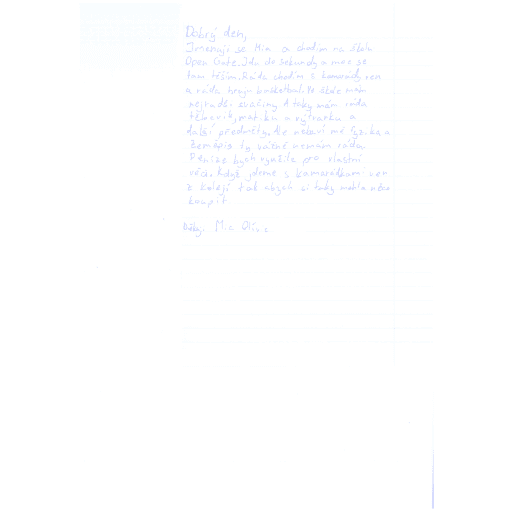 Dobrý den,
Jmenuji se Mia a chodím na školu
Open Gate. Jdu do sekundy a moc se
tam těším. Ráda chodím s kamarády ven
a ráda hraju basketball. Ve škole mám
nejradši svačiny. A taky mám ráda
tělocvik, matiku a výtvarku a
další předměty. Ale nebaví mě fyzika a
Zeměpis ty vážně nemám ráda
Peníze bych využila pro vlastní
věci. Když jdeme s kamarádkami ven
z kolejí tak abych si taky mohla něco
koupit
Díky. Mia